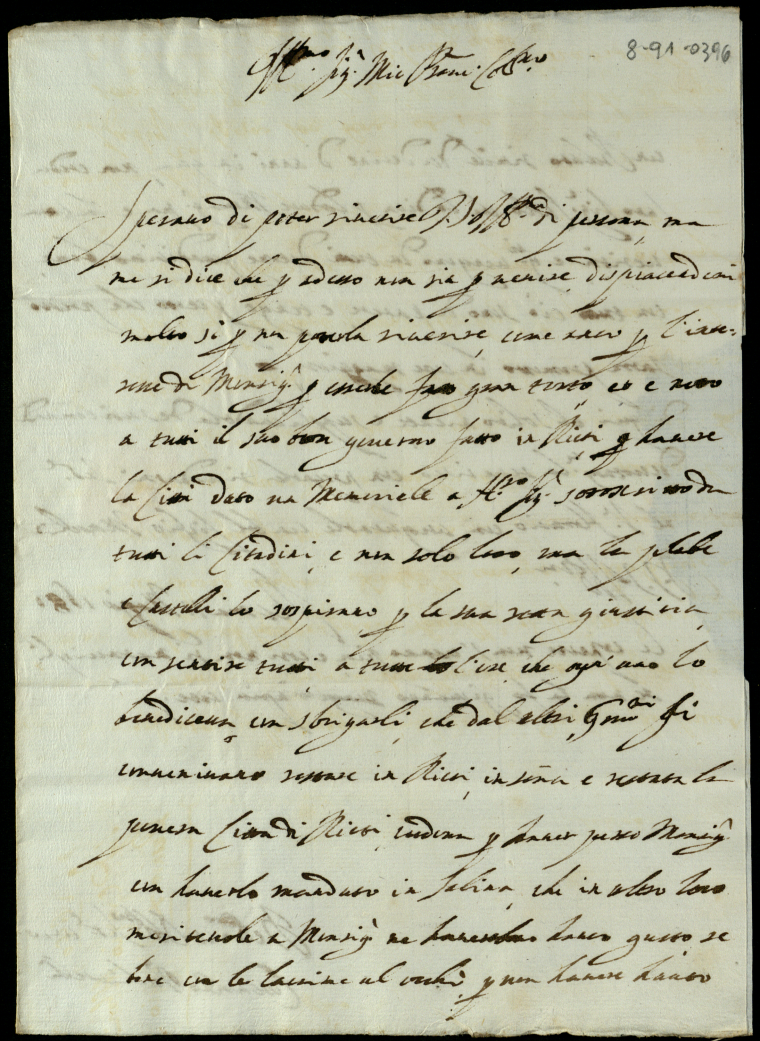 8-91-0396
Ill.mo Sig.r Mio Pron. Col.mo
Speravo di poter riverire V.S. Ill.ma di persona, ma
me si dice che p adesso non sia p venire, dispiacendomi
molto si p no poterla riverire, come anco p l'inte-
resse di Monsig.r p esserle fatto gran torto, et è noto
a tutti il suo bon governo fatto in Rieti p havere
la Città dato un Memoriale a sottoscritto da
tutti li Citadini, e non solo loro, ma la plebe
e Castelli lo sospirano p la sua retta giustitia
con sentire tutti a tutte l'ore che ogni uno lo
benediceva con sbrigarli, che dal altri Gov.ri si
convenivano restare in Rieti, in som̃a e restata la
povera Città di Rieti p haver perso Monsig.r
con haverlo mandato in Sabina, che in altro loco
meritevole a Monsig.r ne havuto gusto se
bene con le lacrime al ochi p non havere havuto